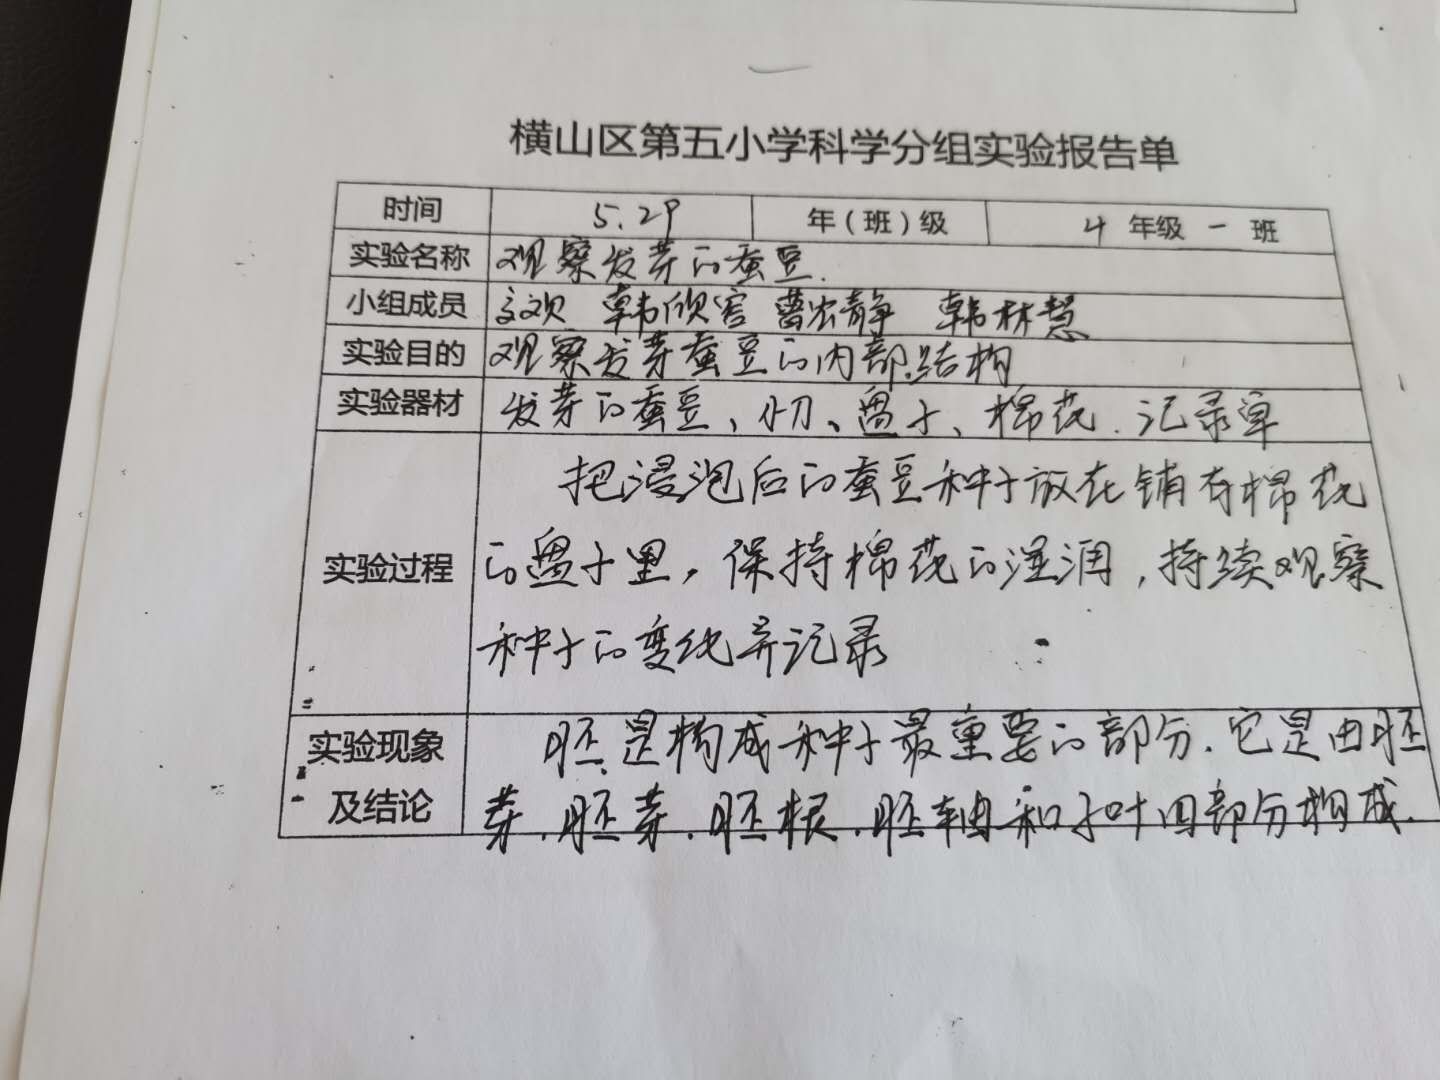 横山区第五小学科学分组实验报告单
时间 5.29 年(班)级 4 年级 一 班
实验名称 观察发芽的蚕豆.
小组成员 韩欣 静 韩林慧
实验目的 观察发芽蚕豆的内部结构
实验器材 发芽的蚕豆、小刀、盘子、棉花、记录单
把浸泡后的蚕豆种子放在铺有棉花
实验过程 的盘子里,保持棉花的湿润,持续观察
种子的变化并记录
实验现象 胚是构成种子最重要的部分.它是由胚
及结论 芽.胚芽.胚根.胚轴和子叶四部分构成.